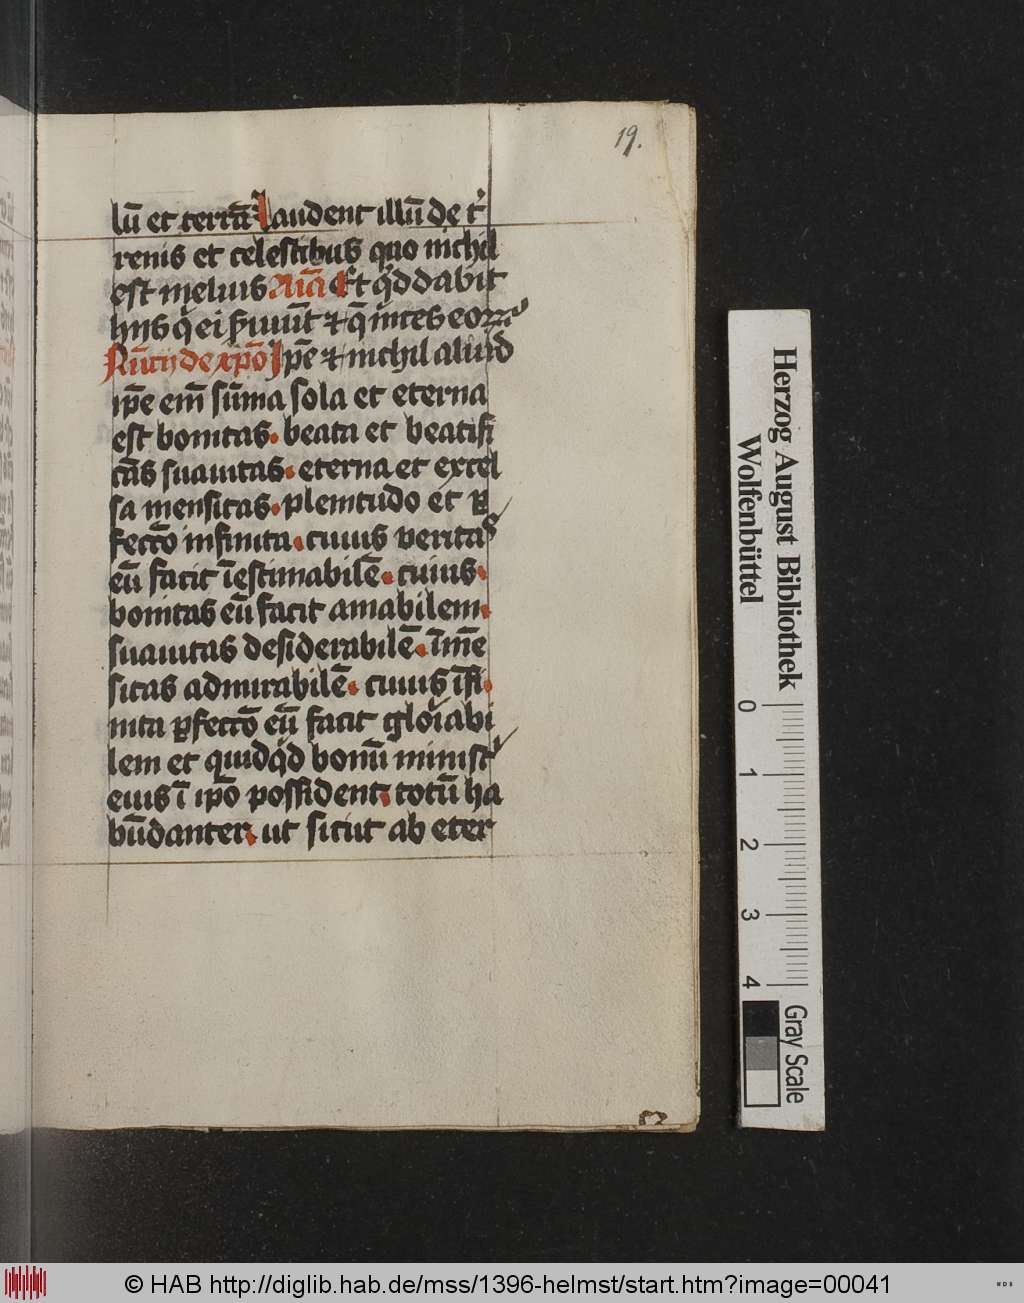 19.
lū et terrā Laudent illū de t'
renis et celestibus quo nichil
est melius Nūcii Et q̇d dabit
hijs q̄ ei s̄viūt ⁊ q̄ īntes eoꝝ
Nūcij de xp̄o Ip̄e ⁊ nichil aliud
ip̄e em̄ sūma sola et eterna
est bonitas. beata et beatifi
cās suauitas. eterna et excel
sa mensitas. plenitudo et ꝑ
fecc̄o infinita. cuius veritas
eū facit īestimabilē. cuius.
bonitas eū facit amabilem.
suauitas desiderabilē. īm̄e
sitas admirabilē. cuius īfi.
nita ꝑfecc̄o eū facit gloīabi
lem et quidq̇d bonū minist'
eius ī ip̄o possident. totū ha
būdanter. ut sicut ab eter
Herzog August Bibliothek
Wolfenbüttel
0 1 2 3 4
Gray Scale
© HAB http://diglib.hab.de/mss/1396-helmst/start.htm?image=00041
WDB